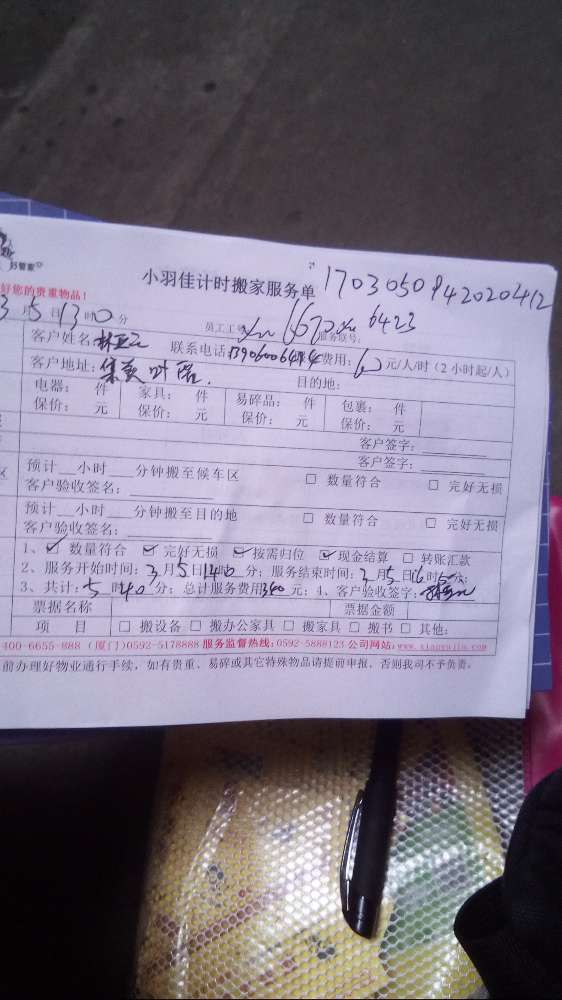 好管家
小羽佳计时搬家服务单
1703050942020412
好您的贵重物品!
3月5日13时0分 员工工号 1670 6423 服务联号:
客户姓名: 联系电话: 费用:60元/人/时(2小时起/人)
客户地址:集美叶 目的地:
电器: 件 家具: 件 易碎品: 件 包裹: 件
保价: 元 保价: 元 保价: 元 保价: 元
客户签字:
客户签字:
预计 小时 分钟搬至候车区 □ 数量符合 □ 完好无损
客户验收签名:
预计 小时 分钟搬至目的地 □ 数量符合 □ 完好无损
客户验收签名:
1、☑ 数量符合 ☑ 完好无损 ☑ 按需归位 ☑ 现金结算 □ 转账汇款
2、服务开始时间:3月5日14时0分;服务结束时间:3月5日16时50分;
3、共计:5时40分;总计服务费用340元;4、客户验收签字:
票据名称 票据金额
项 目 □ 搬设备 □ 搬办公家具 □ 搬家具 □ 搬书 □ 其他:
400-6655-888 (厦门)0592-5178888 服务监督热线:0592-5888123 公司网站:www.xiaoyujia.com
前办理好物业通行手续,如有贵重、易碎或其它特殊物品请提前申报,否则我司不予负责。